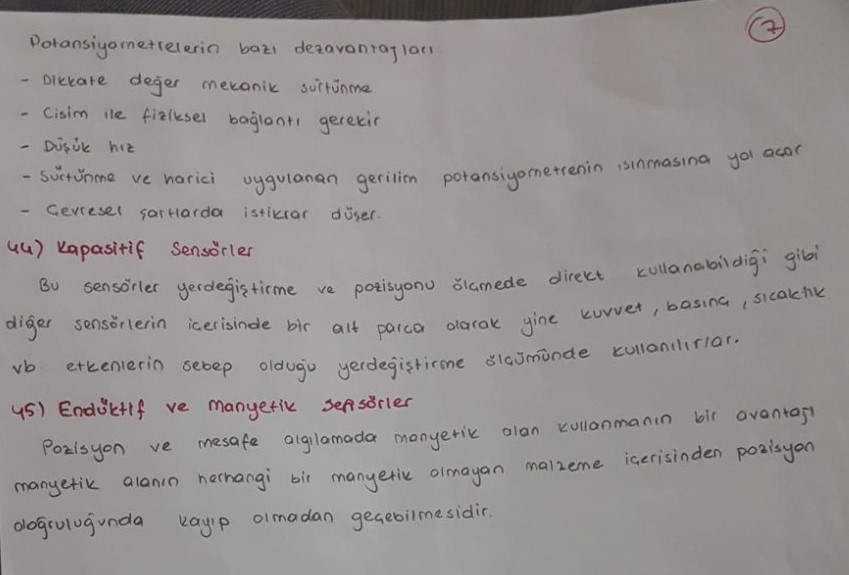 7
Potansiyometrelerin bazı dezavantajları
- Dikkate değer mekanik sürtünme
- Cisim ile fiziksel bağlantı gerekir
- Düşük hız
- Sürtünme ve harici uygulanan gerilim potansiyometrenin ısınmasına yol açar
- Çevresel şartlarda istikrar düşer.
44) Kapasitif Sensörler
Bu sensörler yerdeğiştirme ve pozisyonu ölçmede direkt kullanabildiği gibi
diğer sensörlerin içerisinde bir alt parça olarak yine kuvvet, basınç, sıcaklık
vb etkenlerin sebep olduğu yerdeğiştirme ölçümünde kullanılırlar.
45) Endüktif ve Manyetik Sensörler
Pozisyon ve mesafe algılamada manyetik alan kullanmanın bir avantajı
manyetik alanın herhangi bir manyetik olmayan malzeme içerisinden pozisyon
doğruluğunda kayıp olmadan geçebilmesidir.